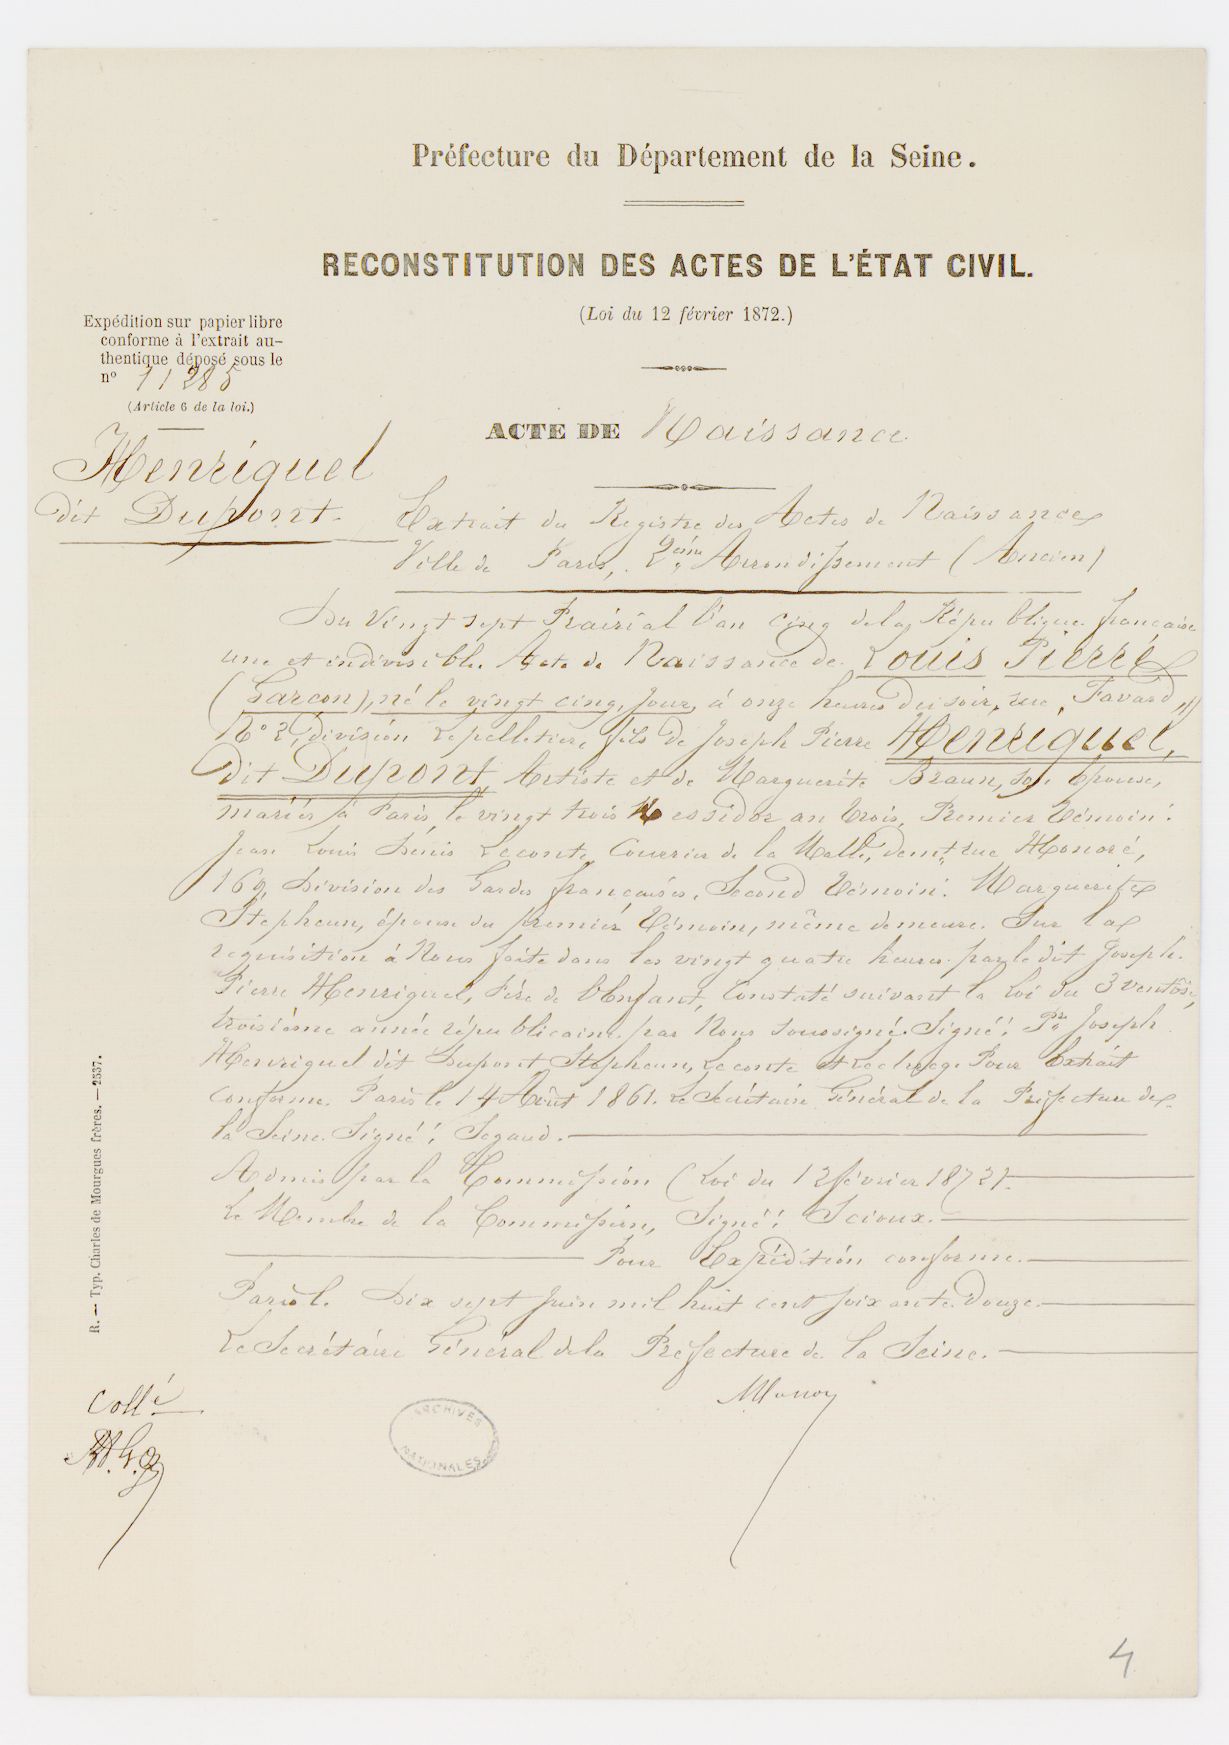 Préfecture du Département de la Seine.
RECONSTITUTION DES ACTES DE L'ÉTAT CIVIL.
(Loi du 12 février 1872.)
Expédition sur papier libre
conforme à l'extrait au-
thentique déposé sous le
nº 11285
(Article 6 de la loi.)
ACTE DE Naissance
Henriquel
dit Dupont.
Extrait du Registre des Actes de Naissance
Ville de Paris, 2ème Arrondissement (Ancien)
Du Vingt sept Prairial l'an cinq de la République française
une et indivisible. Acte de Naissance de Louis Pierre
(Garcon), né le vingt cinq, jour, à onze heures du soir, rue Favard,
Nº 2, division Lepelletier, fils de Joseph Pierre Henriquel,
dit Dupont, Artiste et de Marguerite Braun, son épouse,
mariés à Paris le vingt trois Messidor an trois. Premier témoin:
Jean Louis Dénis Leconte Courrier de la Malle, demt rue Honoré,
169, Division des Gardes françaises. Second témoin: Marguerite
Stepheun, épouse du premier témoin, même demeure. Sur la
requisition à Nous faite dans les vingt quatre heures par le dit Joseph
Pierre Henriquel, Père de l'Enfant, Constaté suivant la Loi du 3 ventôse,
troisième année républicaine par Nous soussigné. Signé: Pre Joseph
Henriquel dit Dupont, Stepheun, Leconte et Pour Extrait
conforme. Paris le 14 Août 1861. Le Secrétaire Général de la Préfecture de
la Seine. Signé: Segaud.
Admis par la Commission (Loi du 12 février 1872).
Le Membre de la Commission, Signé: Scioux.
Pour Expédition conforme.
Paris le Dix sept Juin mil huit cent soixante douze.
Le Secrétaire Général de la Préfecture de la Seine.
Collé
ARCHIVES
NATIONALES
R. — Typ. Charles de Mourgues frères. — 2537.
4